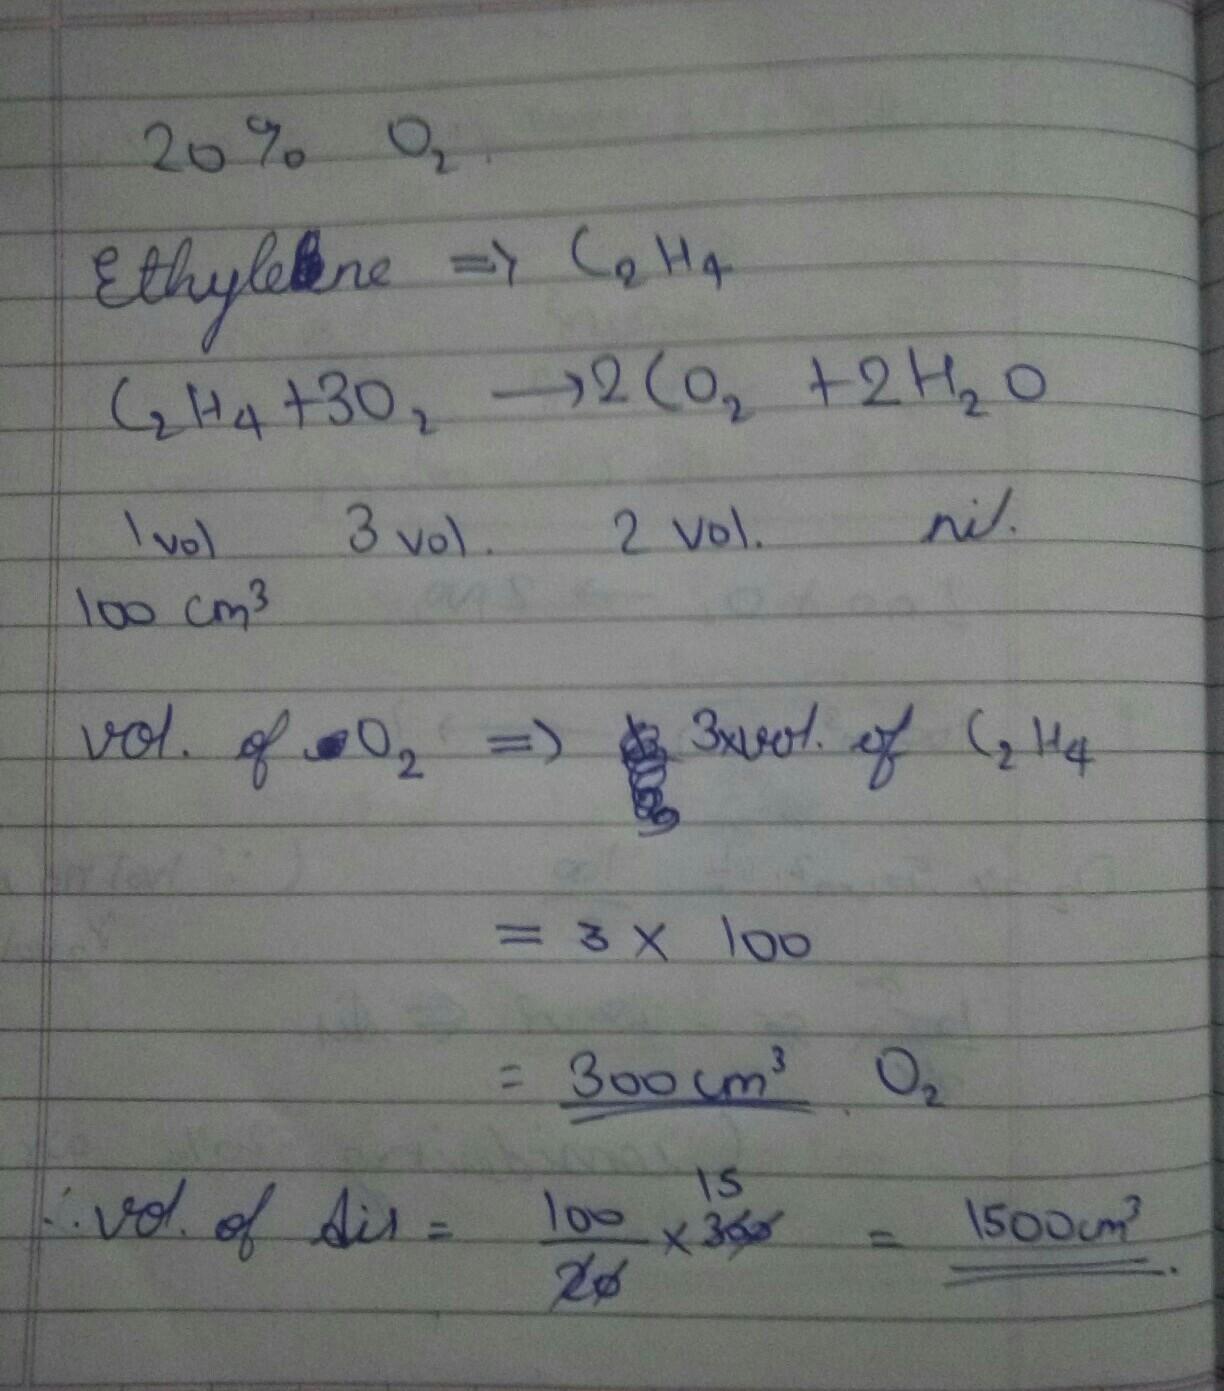 20% O₂.
Ethylene => C₂H₄
C₂H₄ +3O₂ → 2CO₂ +2H₂O
1 vol 3 vol. 2 vol. nil.
100 cm³
vol. of O₂ => 3xvol. of C₂H₄
= 3 x 100
= 300cm³. O₂
15
∴ vol. of Air = 100/20 x 300 = 1500cm³.